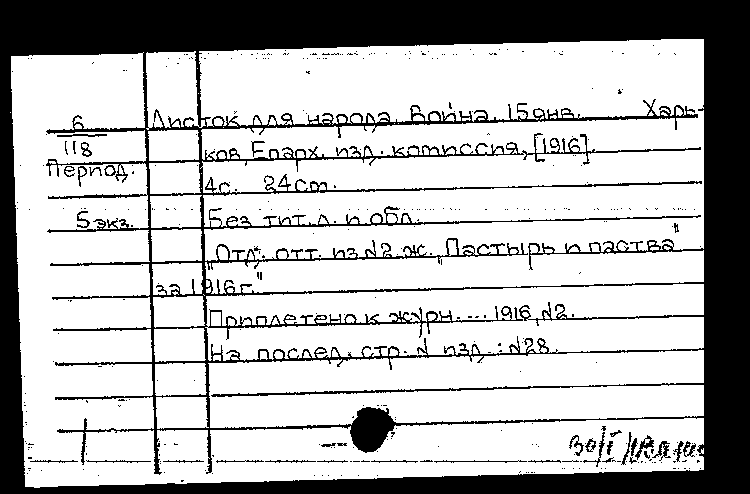 6 Листок для народа. Война. 15 янв. Харь-
118 ков, Епарх. изд. комиссия, [1916].
Период. 4с. 24 см.
5 экз. Без тит. л. и обл.
„Отд. отт. из №2 ж. „Пастырь и паства"
за 1916 г."
Приплетено к журн. ... 1916, №2.
На послед. стр. № изд.: №28.
30/I